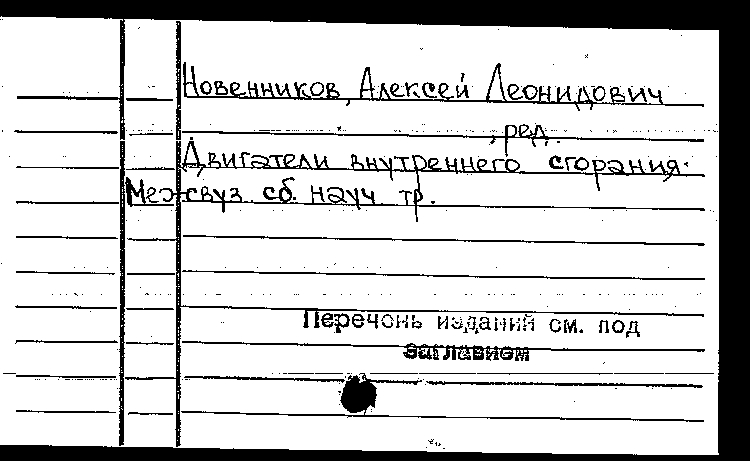 Новенников, Алексей Леонидович
, ред.
Двигатели внутреннего сгорания.
Межвуз. сб. науч тр.
Перечень изданий см. под
заглавием